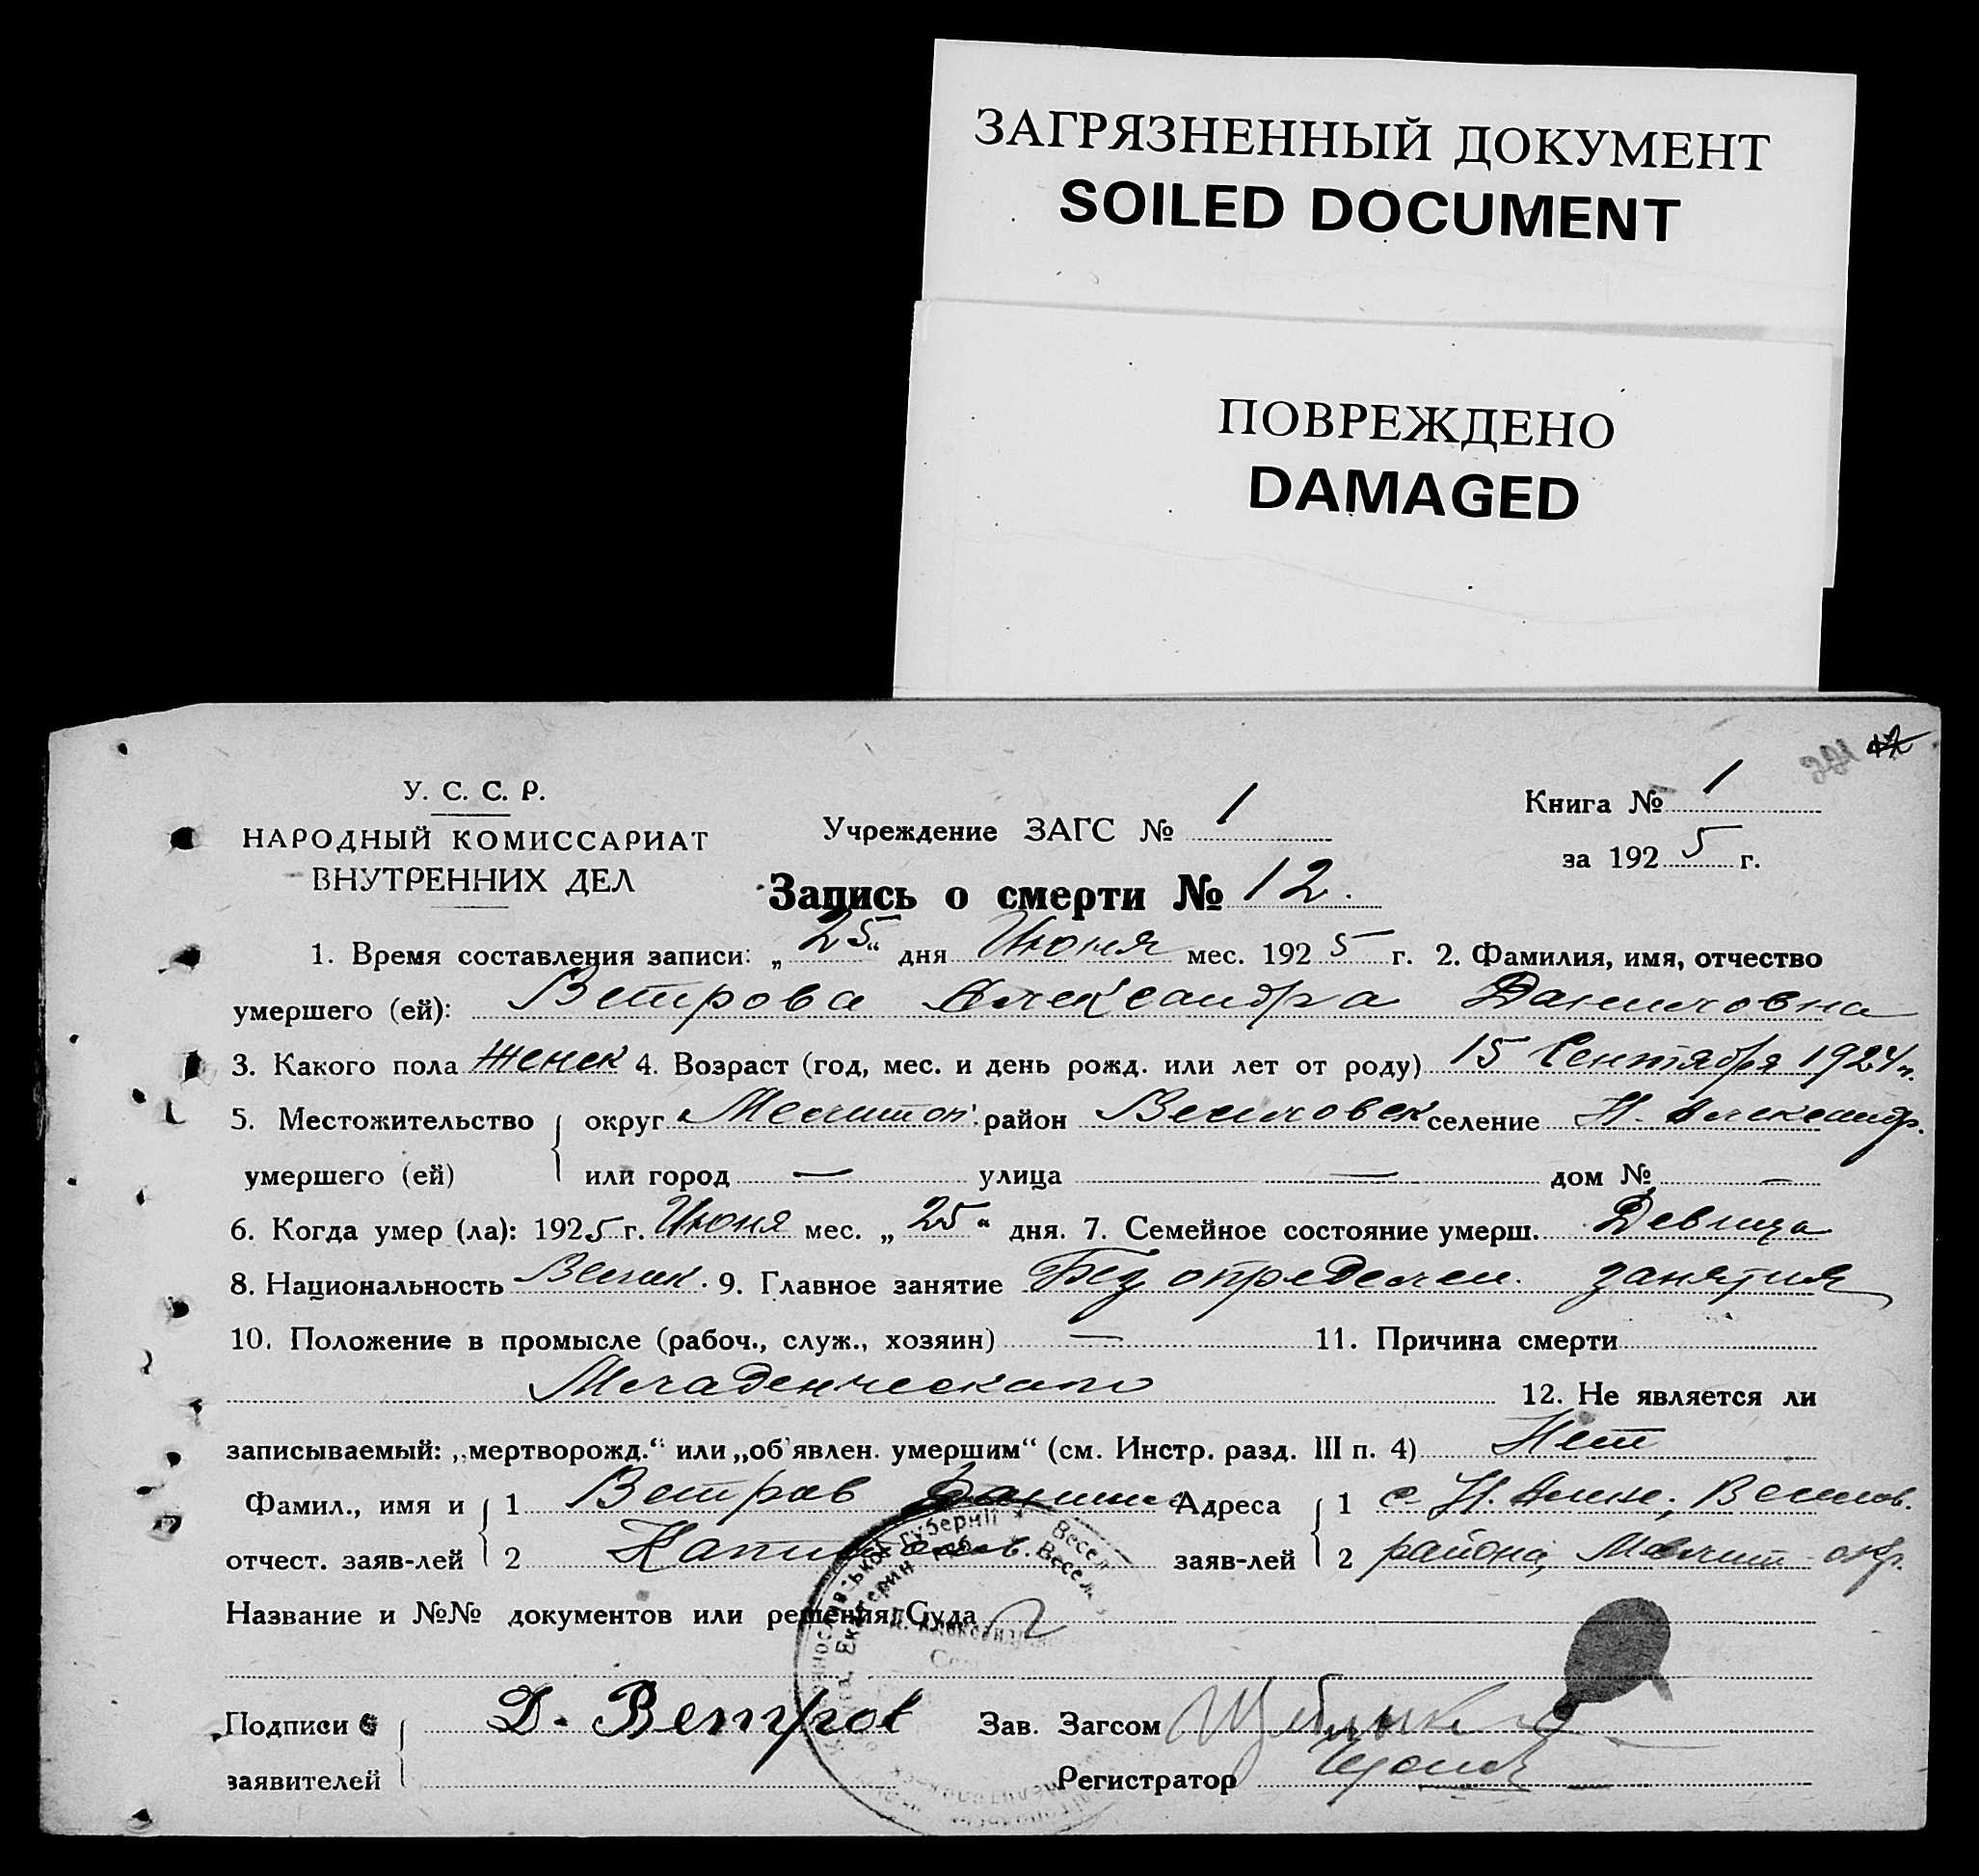 ЗАГРЯЗНЕННЫЙ ДОКУМЕНТ
SOILED DOCUMENT
ПОВРЕЖДЕНО
DAMAGED
У. С. С. Р.
НАРОДНЫЙ КОМИССАРИАТ
ВНУТРЕННИХ ДЕЛ
Учреждение ЗАГС № 1
Книга № 1
за 1925 г.
Запись о смерти № 12.
1. Время составления записи: „25“ дня Июня мес. 1925 г. 2. Фамилия, имя, отчество
умершего (ей): Ветрова Александра Даниловна
3. Какого пола женск 4. Возраст (год, мес. и день рожд. или лет от роду) 15 Сентября 1924 г.
5. Местожительство округ Мелитоп. район Веселовск селение Н. Александр.
умершего (ей) или город — улица — дом № —
6. Когда умер (ла): 1925 г. Июня мес. „25“ дня. 7. Семейное состояние умерш. Девица
8. Национальность Велик. 9. Главное занятие Без определен. занятия
10. Положение в промысле (рабоч., служ., хозяин) — 11. Причина смерти
Младенческого 12. Не является ли
записываемый: „мертворожд.“ или „об'явлен. умершим“ (см. Инстр. разд. III п. 4) Нет
Фамил., имя и 1 Ветров Данило Адреса 1 с. Н. Алек. Веселов.
отчест. заяв-лей 2 заяв-лей 2 района, Мелит окр.
Название и №№ документов или решения Суда
Подписи Д. Ветров Зав. Загсом
заявителей Регистратор